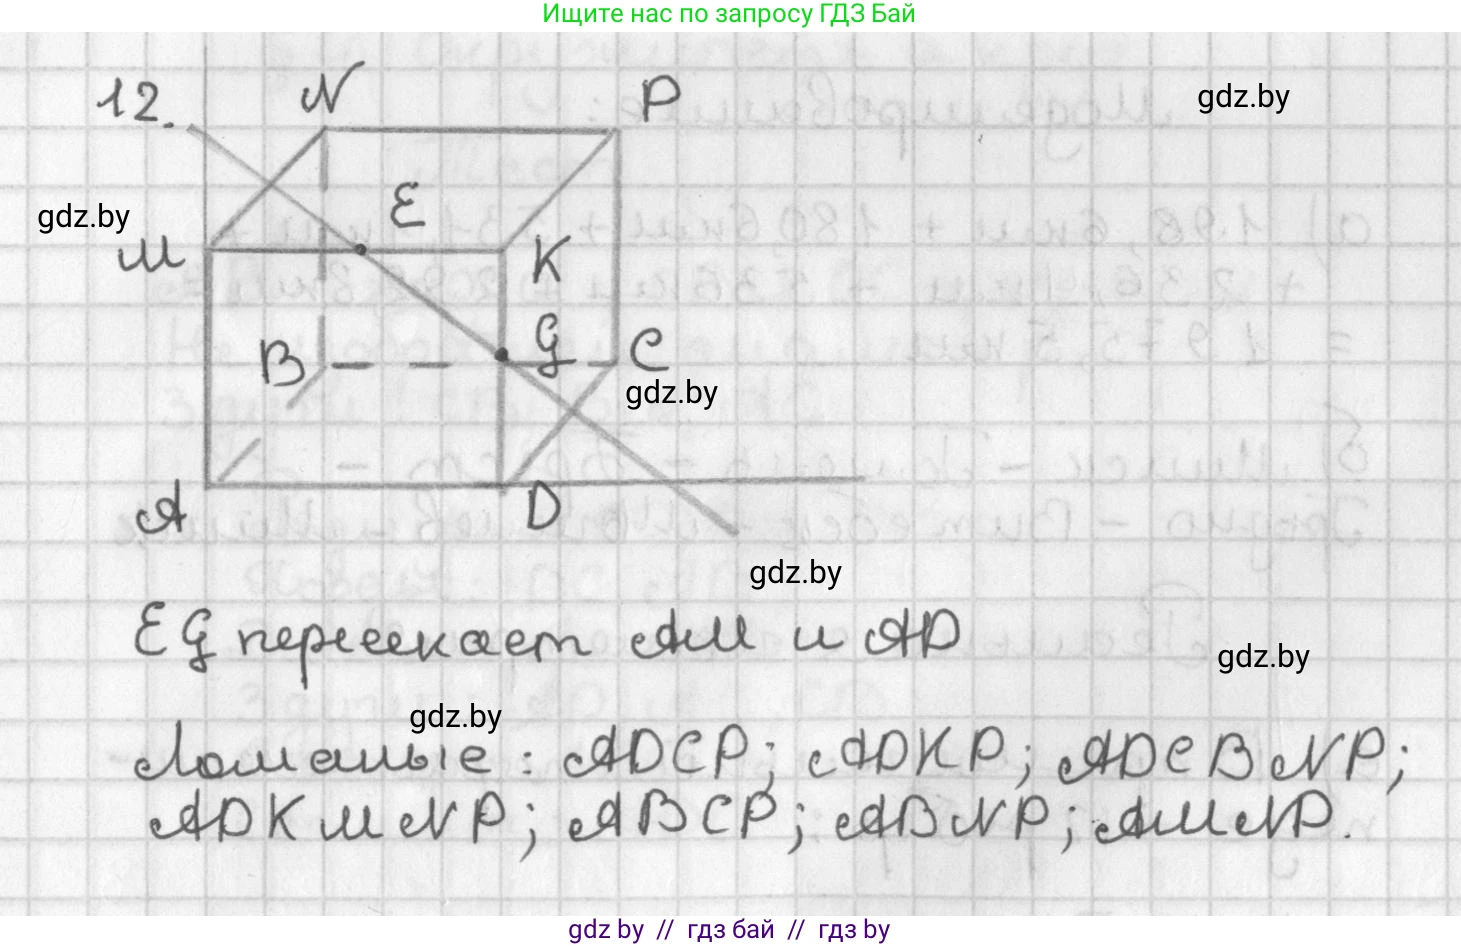 Ищите нас по запросу ГДЗ Бай
12.
N
P
gdz.by
E
gdz.by
M
K
B
G
C
gdz.by
A
D
gdz.by
EG пересекает AM и AD
gdz.by
gdz.by
Ломаные: ADCP; ADKP; ADCBNP;
ADKMNP; ABCP; ABNP; AMNP.
gdz by // гдз бай // гдз by